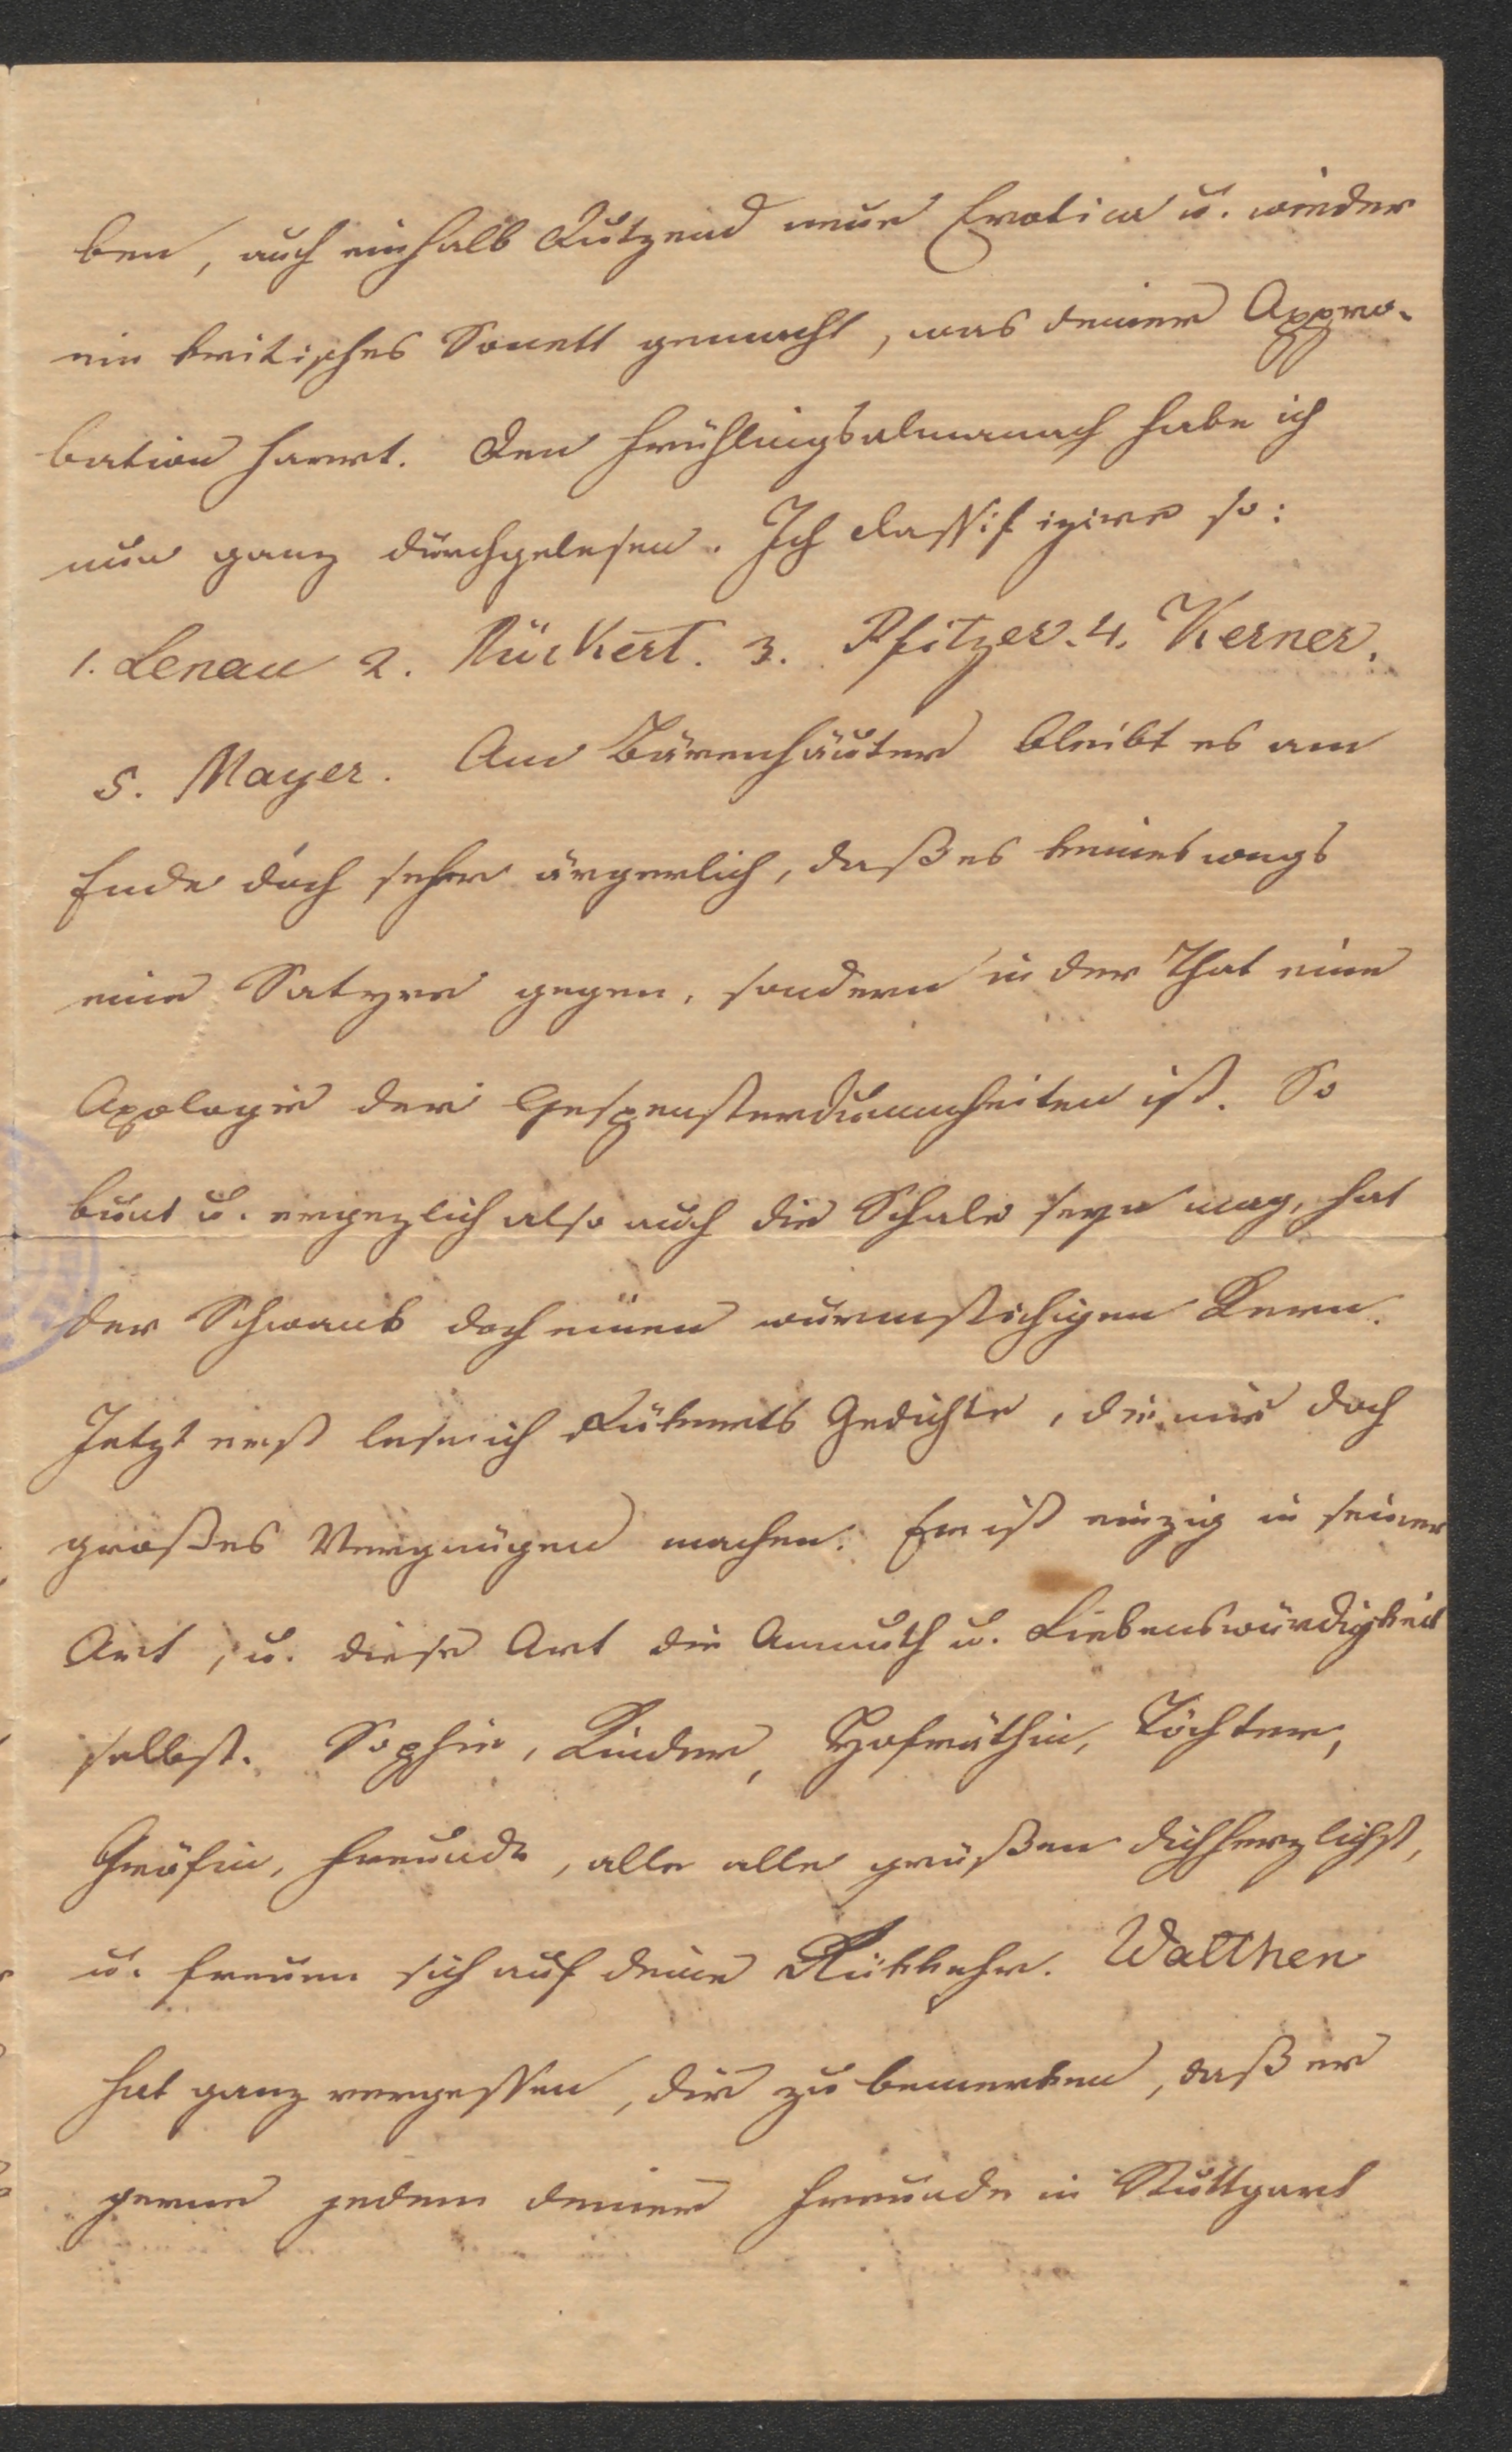 ben, auch einhalb Dutzend neue Erotica u. wieder
ein kritisches Sonett gemacht, was deiner Appro-
bation harrt. Den Frühlingsalmanach habe ich
nun ganz durchgelesen. Ich classifizire so:
1. Lenau 2. Rückert. 3. Pfitzer. 4. Kerner.
5. Mayer. Am Bärenhäuter bleibt es am
Ende doch sehr ärgerlich, daß es keineswegs
eine Satyre gegen, sondern in der That eine
Apologie der Gespensterdummheiten ist. So
bunt u. ergezlich also auch die Schale seyn mag, hat
der Schwank doch einen wurmstichigen Kern.
Jetzt erst lese ich Rükerts Gedichte, die mir doch
großes Vergnügen machen. Er ist einzig in seiner
Art, u. diese Art die Anmuth u. Liebenswürdigkeit
selbst. Sophie, Kinder, Hofräthin, Töchter,
Gräfin, Freunde, alle alle grüßen dich herzlichst,
u. freuen sich auf deine Rükkehr. Walthen
hat ganz vergessen, dir zu bemerken, daß er
gerne jedem deiner Freunde in Stuttgart